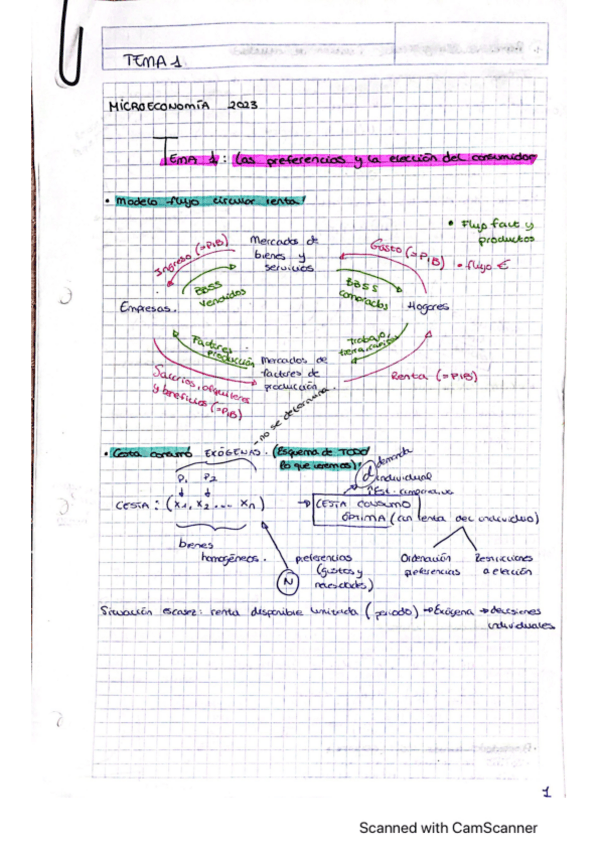 TEMA 1
MICROECONOMÍA 2023
TEMA 1: Las preferencias y la elección del consumidor
• Modelo flujo circular renta
• Flujo fact y
productos
• flujo €
Ingreso (=PIB)
Mercados de
bienes y
servicios
Gasto (=PIB)
BBSS
vendidos
BBSS
comprados
Empresas.
Hogares
Factores
producción
Trabajo,
tierra,
Mercados de
factores de
producción
Salarios, alquileres
y beneficios (=PIB)
Renta (=PIB)
no se determina
• Cesta EXÓGENAS. (Esquema de TODO
lo que veremos):
demanda
individual
P1 P2
CESTA: (x1, x2 ... xn) → CESTA CONSUMO
ÓPTIMA (con renta del individuo)
bienes
homogéneos.
N
preferencias
(gustos y
necesidades)
Ordenación
preferencias
Restricciones
a elección
Situación escasez: renta disponible limitada (periodo) → Exógena → decisiones
individuales
1
Scanned with CamScanner